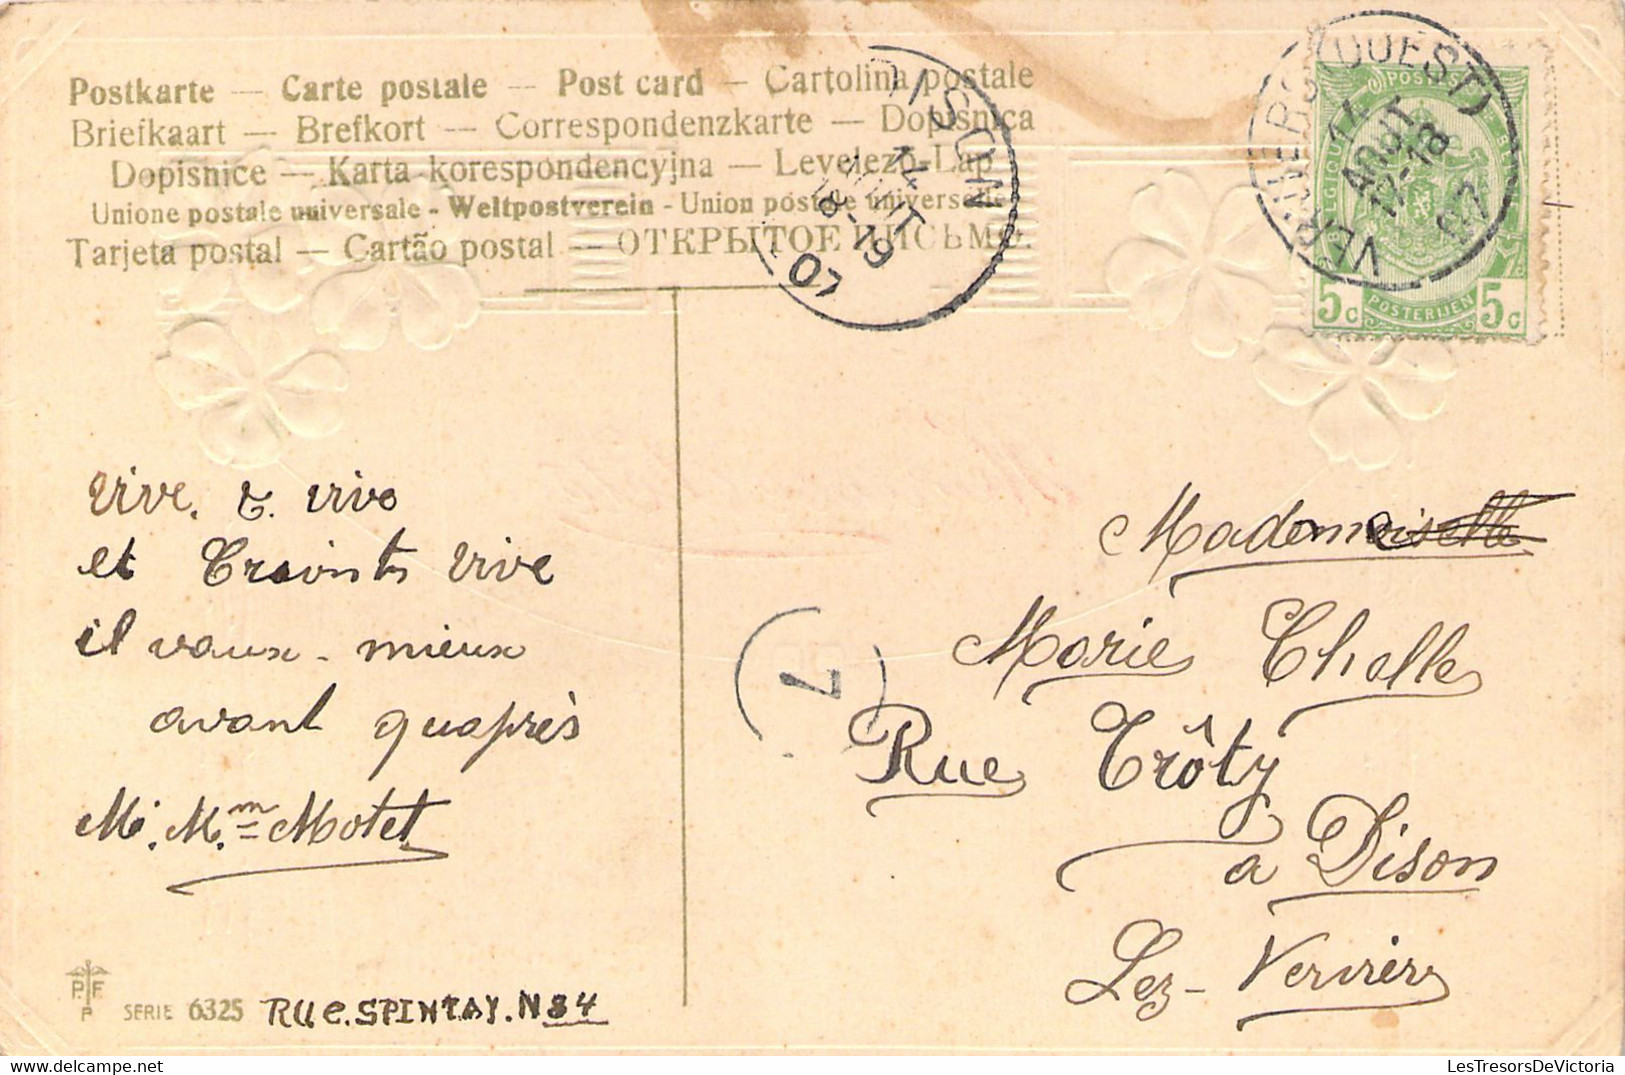 Postkarte — Carte postale — Post card — Cartolina postale
Briefkaart — Brefkort — Correspondenzkarte — Dopisnica
Dopisnice — Karta korespondencyjna — Levelező-Lap
Unione postale universale - Weltpostverein - Union postale universelle
Tarjeta postal — Cartão postal — ОТКРЫТОЕ ПИСЬМО.
DISON
14
AOUT
18-19
07
VERVIERS (OUEST)
14
AOUT
17-18
07
POSTES
BELGIQUE
BELGIE
5c POSTERIJEN 5c
vive. & vive
et Traints vive
il vaux. mieux
avant quaprès
M. Mme Motet
Mademoiselle
Marie Thelle
Rue Trôty
a Dison
Lez-Verviers
7
P. F.
P
SERIE 6325
RUe. SPINTAY. N 84
LesTresorsDeVictoria.com